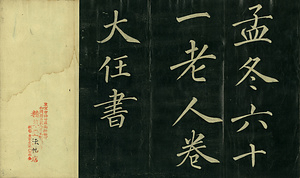 孟冬六十
一老人卷
大任書